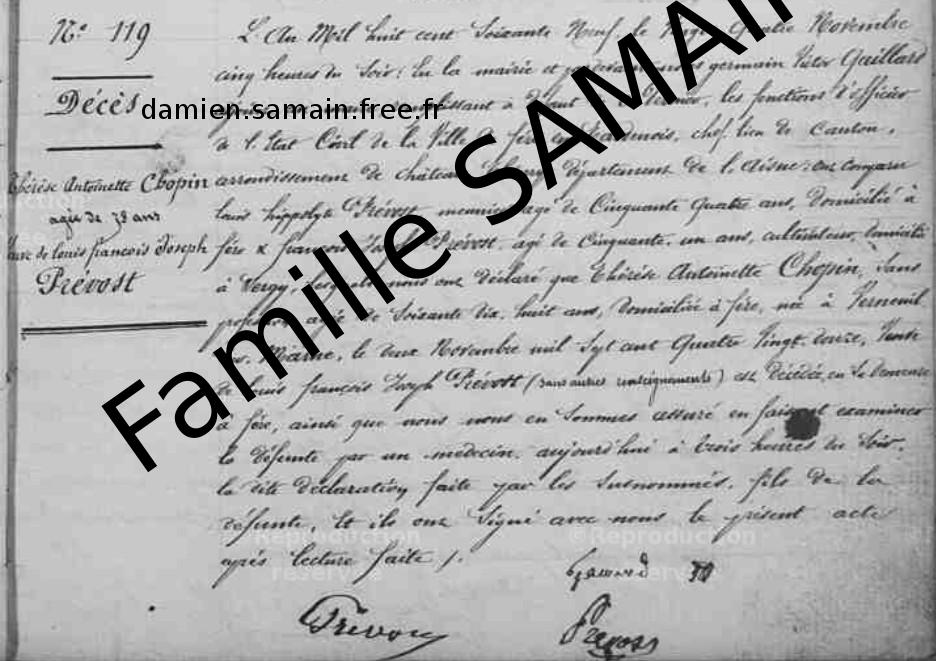 N° 119
Décès
Thérèse Antoinette Chopin
agée de 78 ans
Veuve de louis françois Joseph
Prévost
L'An Mil huit cent Soixante Neuf, le Vingt Quatre Novembre
cinq heures du Soir; En la mairie et pardevant nous germain Victor Gaillard
les fonctions d'officier
de l'Etat Civil de la Ville de fère en Tardenois, chef lieu de Canton,
arrondissement de château thierry département de l'Aisne; ont comparu
louis hippolyte Prévost, menuisier agé de Cinquante quatre ans, Domicilié à
fère & françois Joseph Prévost, agé de Cinquante un ans, cultivateur, domicilié
à Sergy; lesquels nous ont Déclaré que Thérèse Antoinette Chopin, Sans
profession, agée de Soixante dix huit ans, Domiciliée à fère, née à Verneuil
Marne, le deux Novembre mil Sept cent Quatre Vingt onze, Veuve
de louis françois Joseph Prévost (sans autres renseignements) est Décédée en Sa Demeure
à fère, ainsi que nous nous en Sommes assuré en faisant examiner
la Défunte par un médecin, aujourd'hui à trois heures du Soir,
la dite Déclaration faite par les Susnommés, fils de la
défunte, Et ils ont Signé avec nous le présent acte
après lecture faite /.
Prévost
Prevost
Famille SAMAIN
damien.samain.free.fr
©Reproduction
réservée
©Reproduction